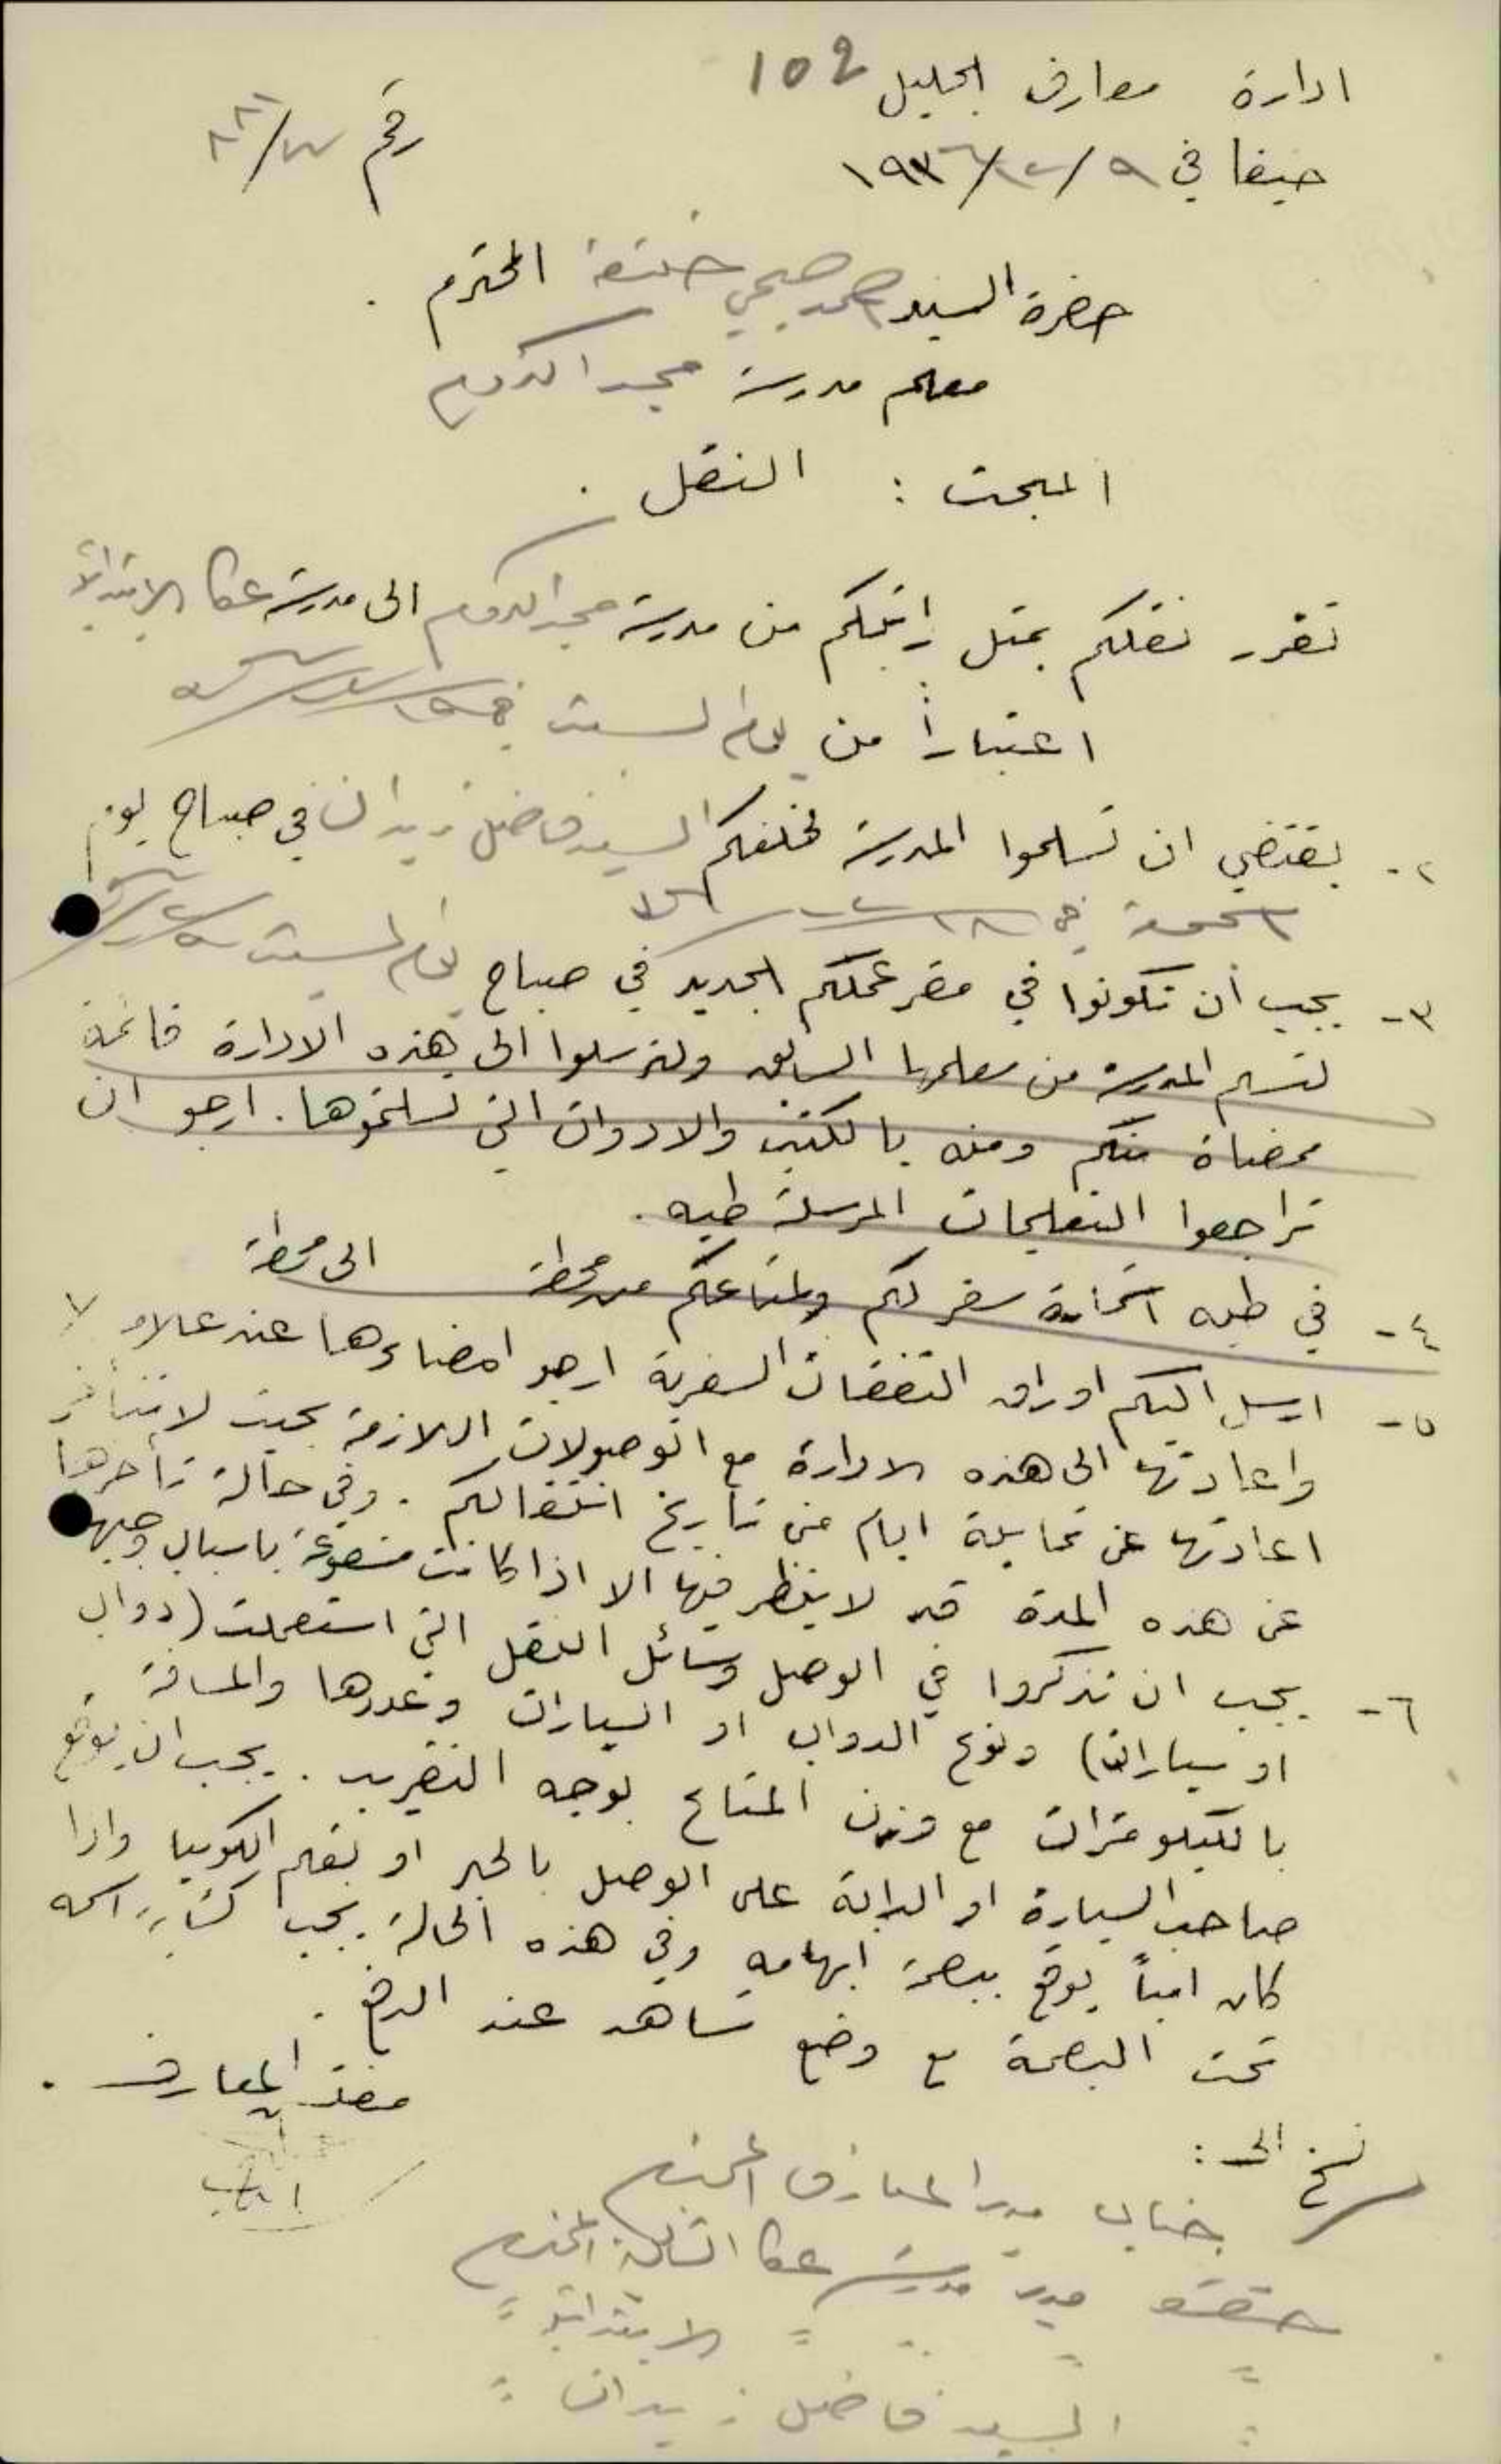 ادارة معارف الجليل 102
حيفا في ٩/١٢/١٩٣٦ رقم
حضرة السيد احمد صبحي خليفة المحترم .
معلم مدرسة مجد الكروم
المبحث : النقل .
تقرر نقلكم بمثل راتبكم من مدرسة مجد الكروم الى مدرسة عكا الابتدائية
اعتباراً من يوم السبت في
٢- يقتضي ان تسلموا المدرسة لخلفكم السيد فاضل زيدان في صباح يوم
الجمعة في
٣- يجب أن تكونوا في مقر عملكم الجديد في صباح يوم السبت
لتسلم المدرسة من معلمها السابق ولترسلوا الى هذه الادارة قائمة
ممضاة منكم ومنه بالكتب والادوات التي تسلمتموها . ارجو ان
تراجعوا التعليمات المرسلة طيه .
٤- في طيه استمارة سفر لكم ولمتاعكم من محطة الى محطة
٥- ارسل اليكم اوراق النفقات السفرية ارجو امضاءها عند علامة ×
واعادتها الى هذه الادارة مع الوصولات اللازمة بحيث لا تتأخر
اعادتها عن ثمانية ايام من تاريخ انتقالكم . وفي حالة تأخرها
عن هذه المدة قد لا ينظر فيها الا اذا كانت مشفوعة باسباب وجيهة
٦- يجب ان تذكروا في الوصل وسائل النقل التي استعملت (دواب
او سيارات) ونوع الدواب او السيارات وعددها والمسافة
بالكيلومترات مع وزن المتاع بوجه التقريب . يجب ان يوقع
صاحب السيارة او الدابة على الوصل بالحبر او بقلم الكوبيا واذا
كان امياً يوقع ببصمة ابهامه وفي هذه الحالة يجب كتابة اسمه
تحت البصمة مع وضع شاهد عند الدفع .
مفتش المعارف .
نسخ الى :
جناب مدير المعارف المحترم
حضرة مدير مدرسة عكا الثانوية المحترم
〃 〃 〃 الابتدائية 〃
〃 السيد فاضل زيدان 〃